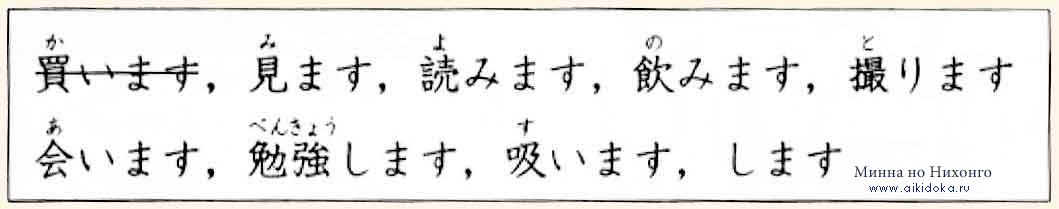 か み よ の と
買います, 見ます, 読みます, 飲みます, 撮ります
あ べんきょう す
会います, 勉強します, 吸います, します
Минна но Нихонго
www.aikidoka.ru